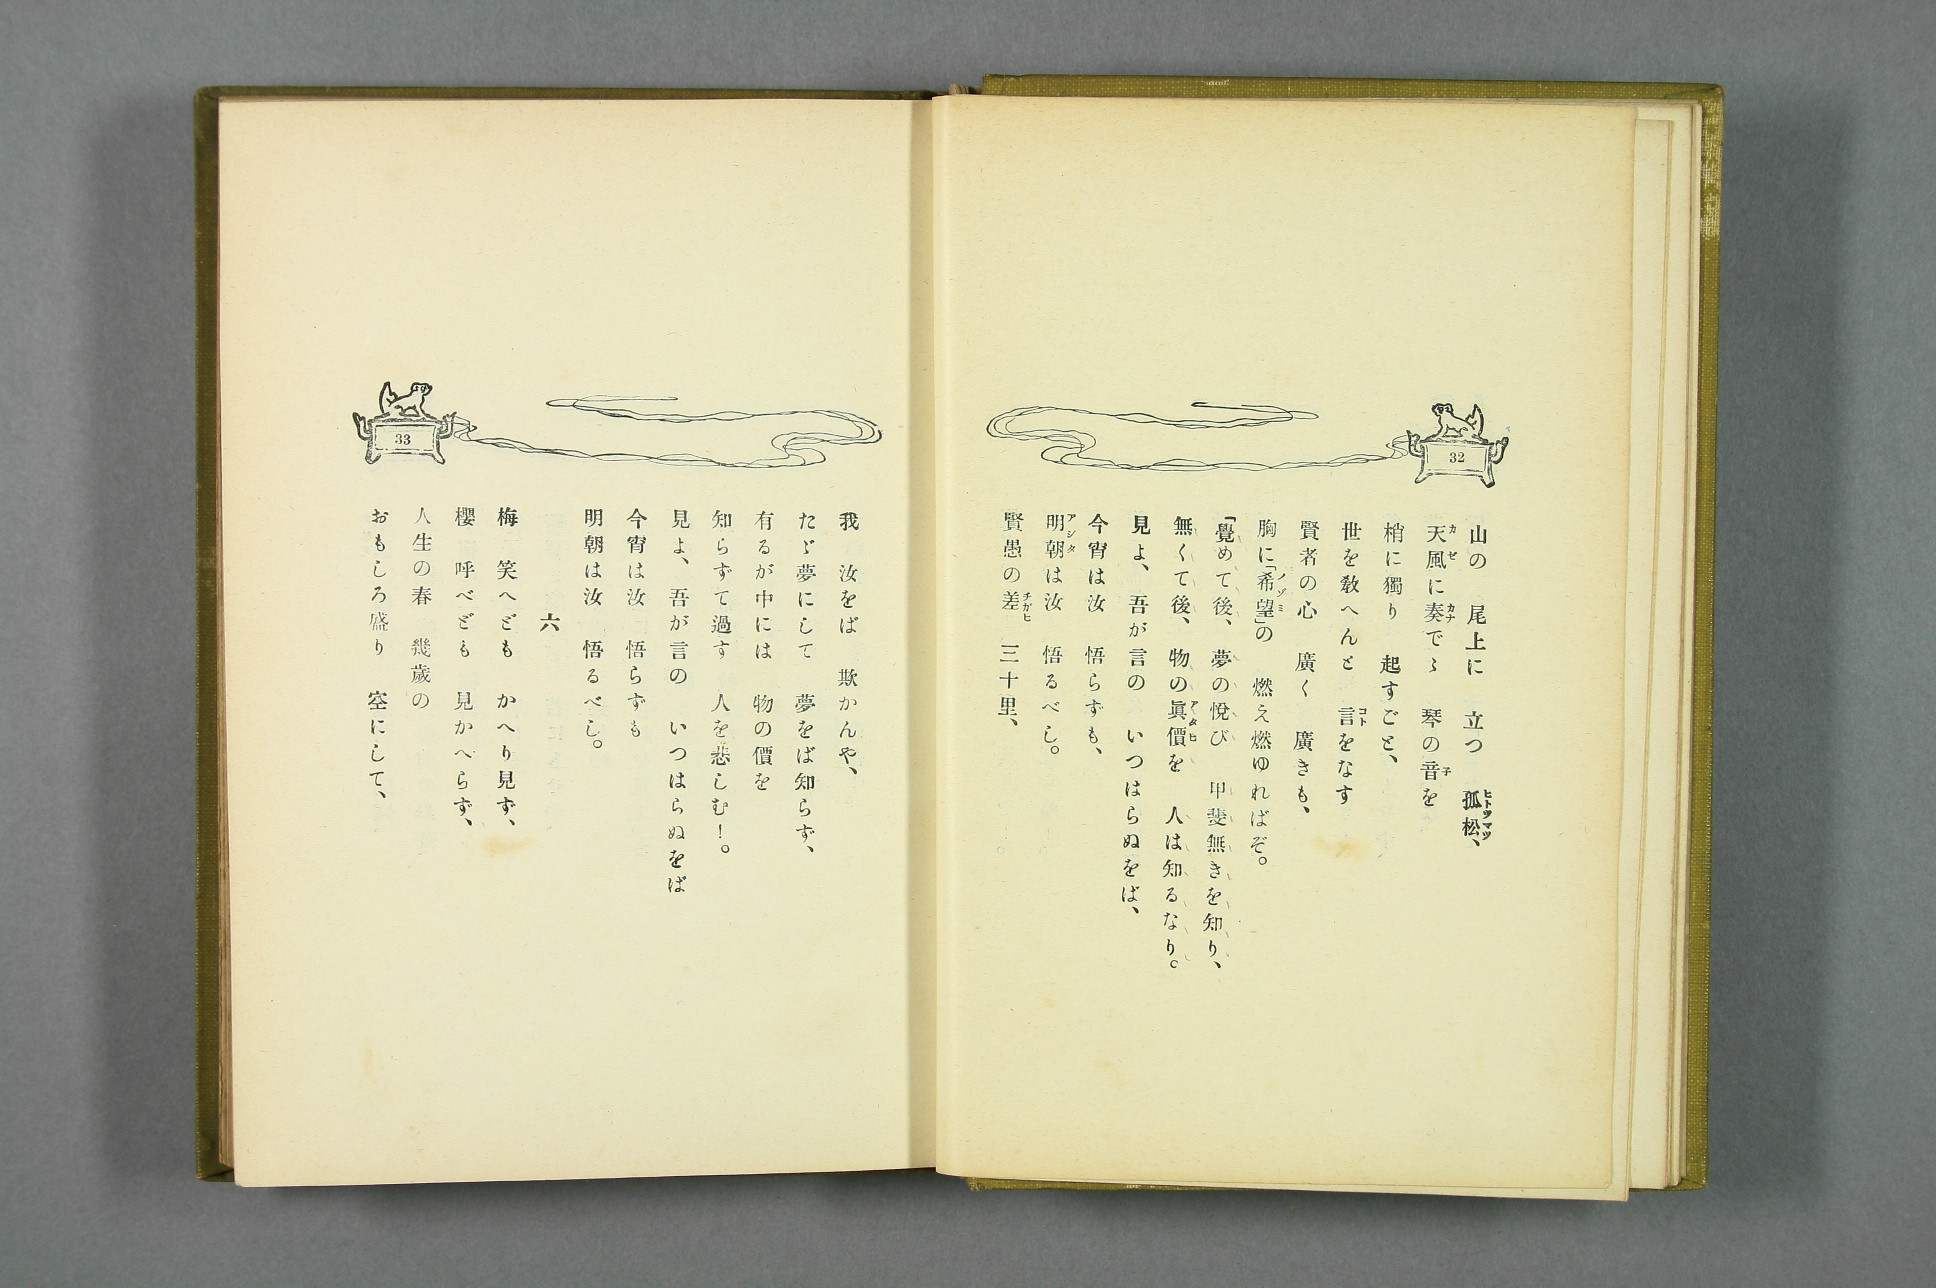 32
山の　尾上に　立つ　孤松、
天風に奏でゝ　琴の音を
梢に獨り　起すごと、
世を敎へんと　言をなす
賢者の心　廣く　廣きも、
胸に「希望」の　燃え燃ゆればぞ。
「覺めて後、夢の悅び　甲斐無きを知り、
無くて後、物の眞價を　人は知るなり。
見よ、吾が言の　いつはらぬをば、
今宵は汝　悟らずも、
明朝は汝　悟るべし。
賢愚の差　三十里、
33
我　汝をば　欺かんや、
たゞ夢にして　夢をば知らず、
有るが中には　物の價を
知らずて過す　人を悲しむ！。
見よ、吾が言の　いつはらぬをば
今宵は汝　悟らずも
明朝は汝　悟るべし。
六
梅　笑へども　かへり見ず、
櫻　呼べども　見かへらず、
人生の春　幾歲の
おもしろ盛り　空にして、